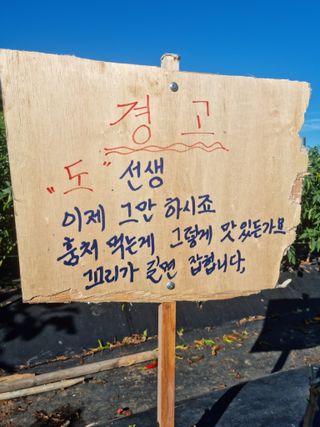 경고
"도" 선생
이제 그만 하시죠
훔쳐 먹는게 그렇게 맛있든가요
꼬리가 길면 잡힙니다,